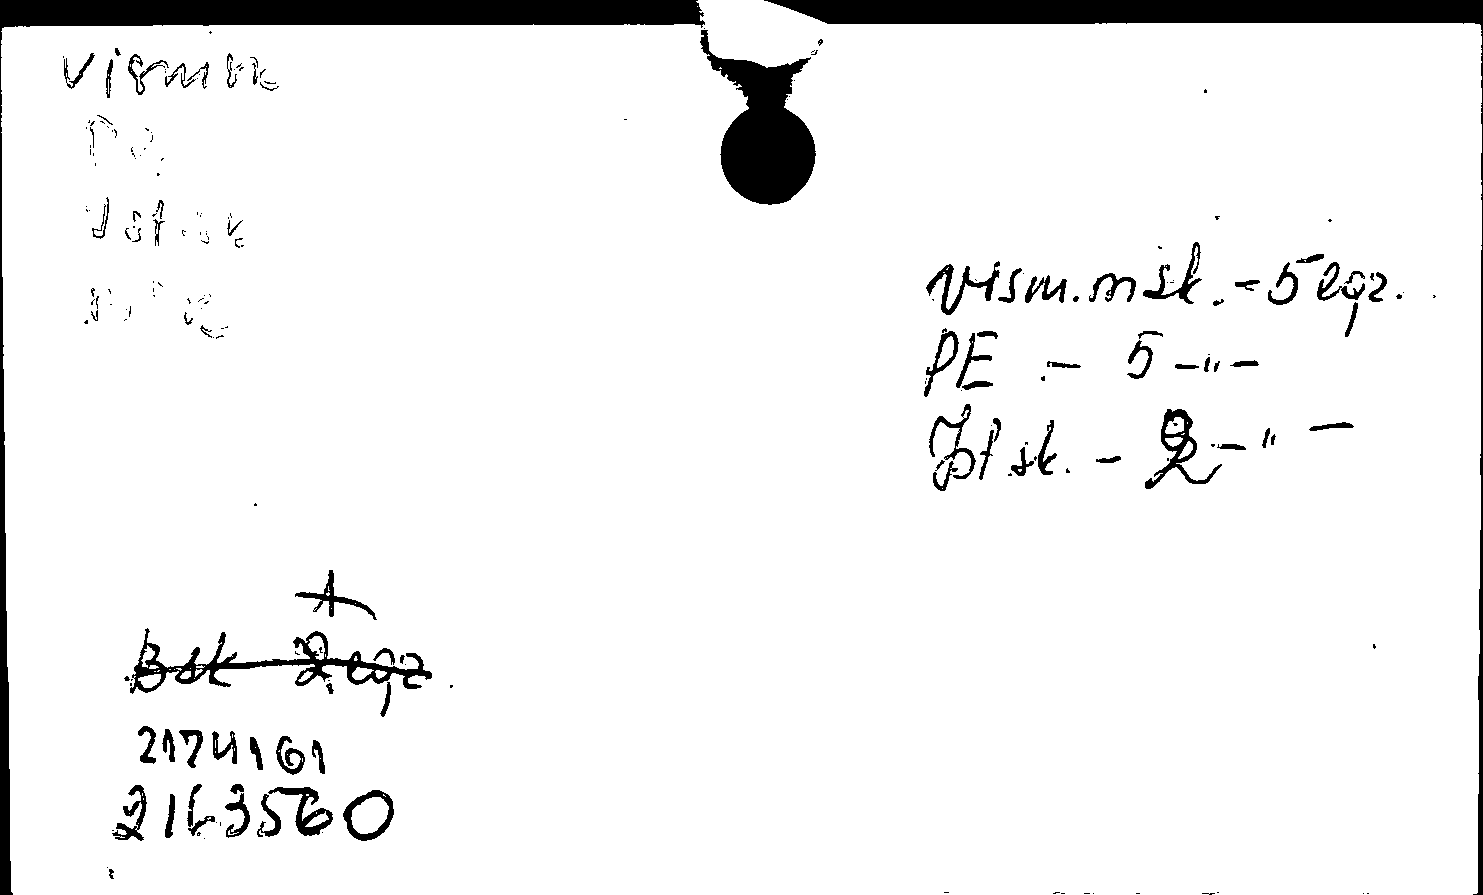 vismsk
Ist sk
vism.msk. - 5 egz.
PE - 5 -"-
Ist sk. - 2 -"-
1
Bsk 2 egz
2174161
2163560